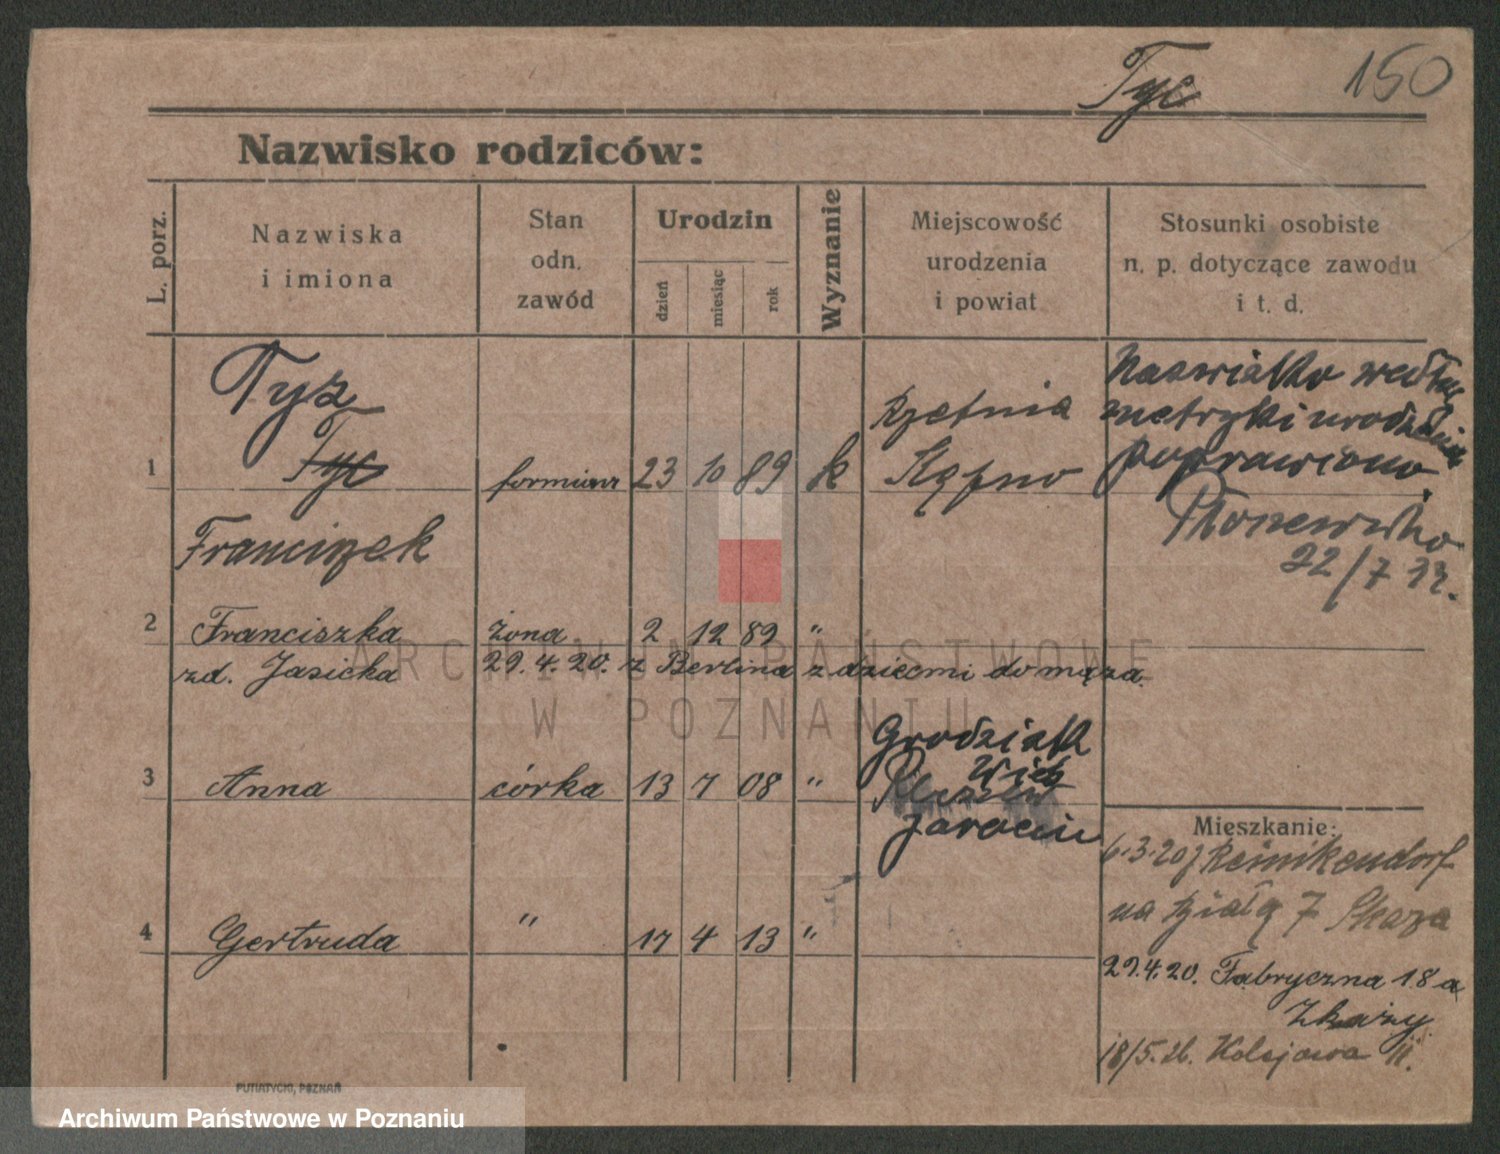 Tyc 150
Nazwisko rodziców:
L. porz.
Nazwiska
i imiona
Stan
odn.
zawód
Urodzin
dzień
miesiąc
rok
Wyznanie
Miejscowość
urodzenia
i powiat
Stosunki osobiste
n. p. dotyczące zawodu
i t. d.
1
Tyz
Tyc
Franciszek
formierz 23 10 89 k
Rzetnia
Kępno
Nazwisko według
metryki urodzenia
poprawiono.
22/7
2 Franciszka żona 2 12 89 "
zd. Jasicka 29.4.20. z Berlina z dziećmi do męża.
3 Anna córka 13 7 08 "
Grodzisk
Jarocin
4 Gertruda " 17 4 13 "
Mieszkanie:
6.3.20 z Reinikendorf
29.4.20. Fabryczna 18a
18/5. Kolejowa
PUTIATYCKI, POZNAŃ
ARCHIWUM PAŃSTWOWE
W POZNANIU
Archiwum Państwowe w Poznaniu